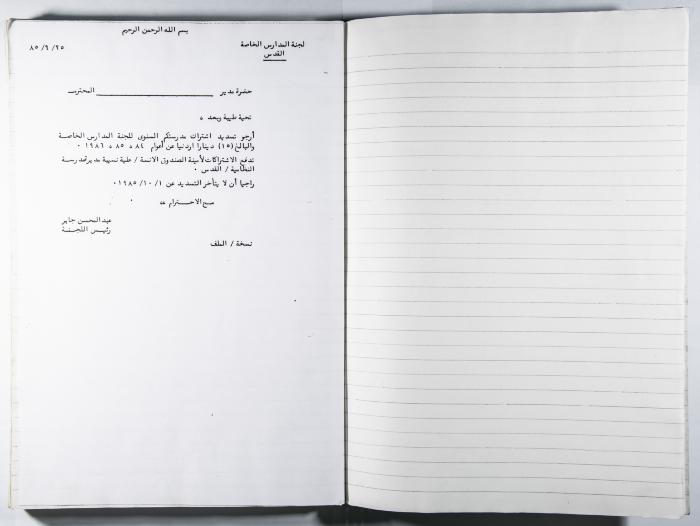 بسم الله الرحمن الرحيم
لجنة المدارس الخاصة
القدس
٨٥ /٦/ ٢٥
حضرة مدير ــــــــــــــــــــ المحترم
تحية طيبة وبعد ،
أرجو تسديد اشتراك مدرستكم السنوي للجنة المدارس الخاصة
والبالغ (١٥) دينارا اردنيا عن أعوام ٨٤ ، ٨٥ ، ١٩٨٦ .
تدفع الاشتراكات لأمينة الصندوق الانسة / علية نسيبة مديرة مدرسة
النظامية / القدس .
راجيا أن لا يتأخر التسديد عن ١/ ١٠/ ١٩٨٥.
مع الاحترام ،،
عبد المحسن جابر
رئيس اللجنة
نسخة / الملف